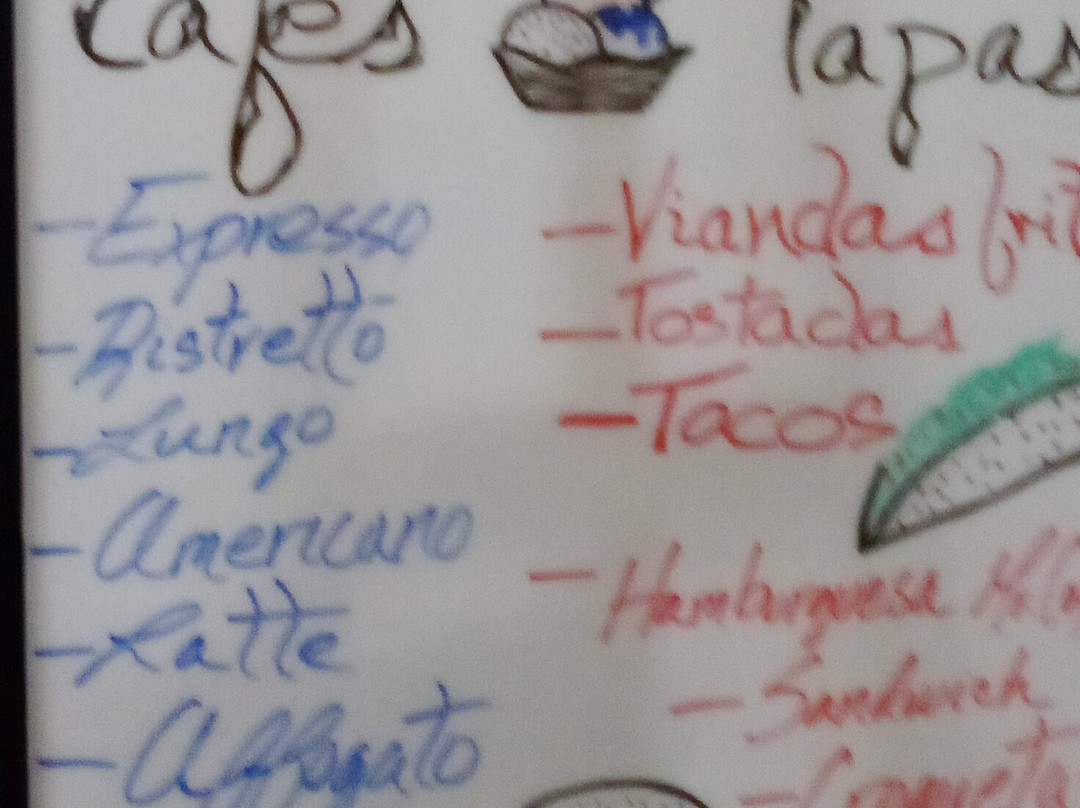 Cafes
Expresso
Ristretto
Lungo
Americano
Latte
Affogato
Tapas
Viandas frit
Tostadas
Tacos
Hamburguesa
Sandwich
Croqueta